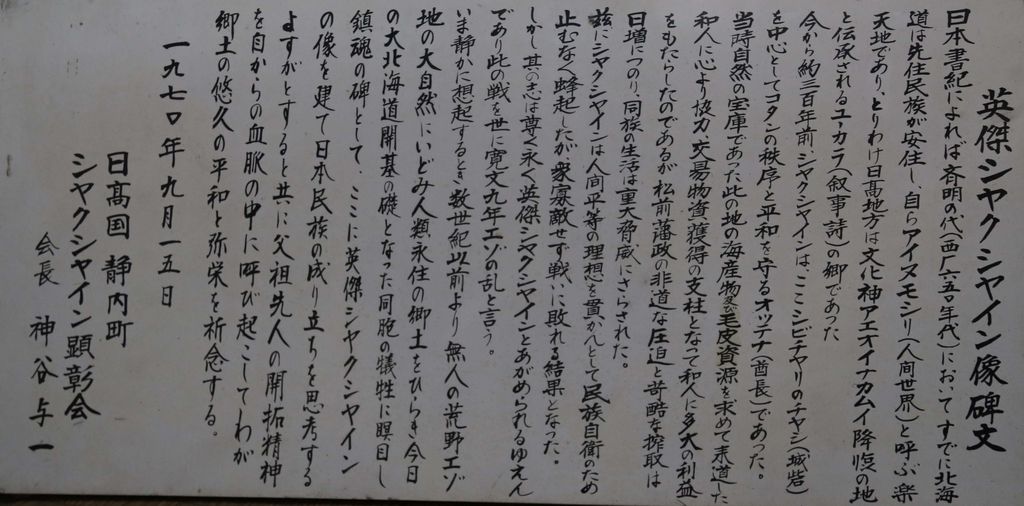 英傑シャクシャイン像碑文
日本書紀によれば斉明の代(西厂六五〇年代)においてすでに北海
道は先住民族が安住し、自らアイヌモシリ(人間世界)と呼ぶ楽
天地であり、とりわけ日高地方は文化神アエオイナカムイ降臨の地
と伝承されるユーカラ(叙事詩)の郷であった
今から約三百年前、シヤクシヤインはここシビチャリのチャシ(城砦)
を中心としてコタンの秩序と平和を守るオッテナ(酋長)であった。
当時自然の宝庫であった此の地の海産物及毛皮資源を求めて来道した
和人に心より協力交易物資獲得の支柱となって和人に多大の利益
をもたらしたのであるが松前藩政の非道な圧迫と苛酷な搾取は
日増につのり、同族の生活は重大脅威にさらされた。
玆にシャクシャインは人間平等の理想を貫かんとして民族自衛のため
止むなく蜂起したが、衆寡敵せず戦いに敗れる結果となった。
しかし其の志は尊く永く英傑シャクシャインとあがめられるゆえん
であり此の戦を世に寛文九年エゾの乱と言う。
いま静かに想起するとき数世紀以前より無人の荒野エゾ
地の大自然にいどみ人類永住の郷土をひらき今日
の大北海道開基の礎となった同胞の犠牲に瞑目し
鎮魂の碑として、ここに英傑シャクシャイン
の像を建て日本民族の成り立ちを思考する
よすがとすると共に父祖先人の開拓精神
を自からの血脈の中に呼び起こしてわが
郷土の悠久の平和と弥栄を祈念する。
一九七〇年九月一五日
日高国静内町
シヤクシヤイン顕彰会
会長 神谷与一